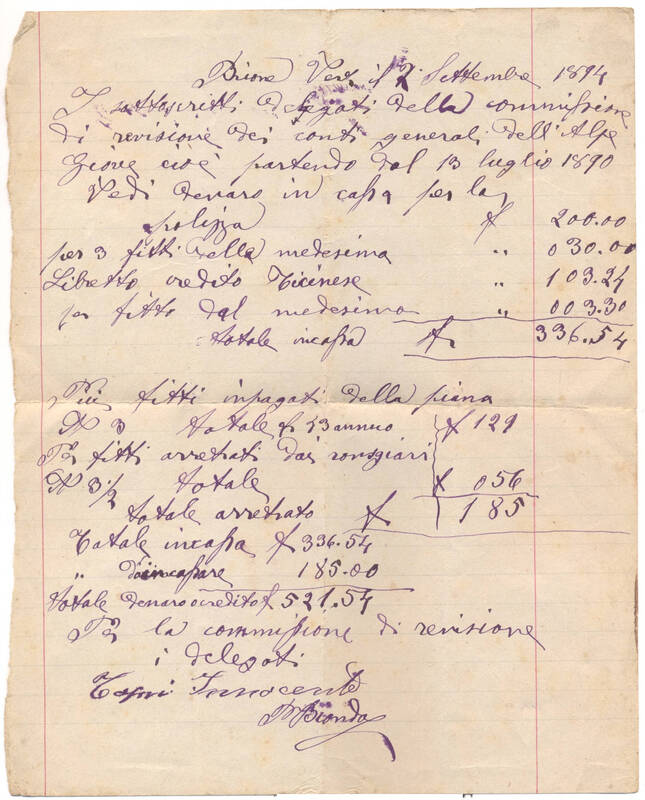 Brione Verz. il 7 Settembre 1894
I sottoscritti delegati della commissione
di revisione dei conti generali dell'Alpe
cioè partendo dal 13 luglio 1890
Vedi denaro in cassa per la
polizza f 200.00
per 3 fitti della medesima " 030.00
Libretto credito Ticinese " 103.24
per fitto dal medesimo " 003.30
totale incassa fr 336.54
Più fitti inpagati della piana
N 3 totale f 43 annuo f 129
Per fitti arretrati dai
N 3½ totale f 056
totale arretrato f 185
Totale incassa f 336.54
" daincassare 185.00
totale denaro e credito f 521.54
Per la commissione di revisione
i delegati
Innocente